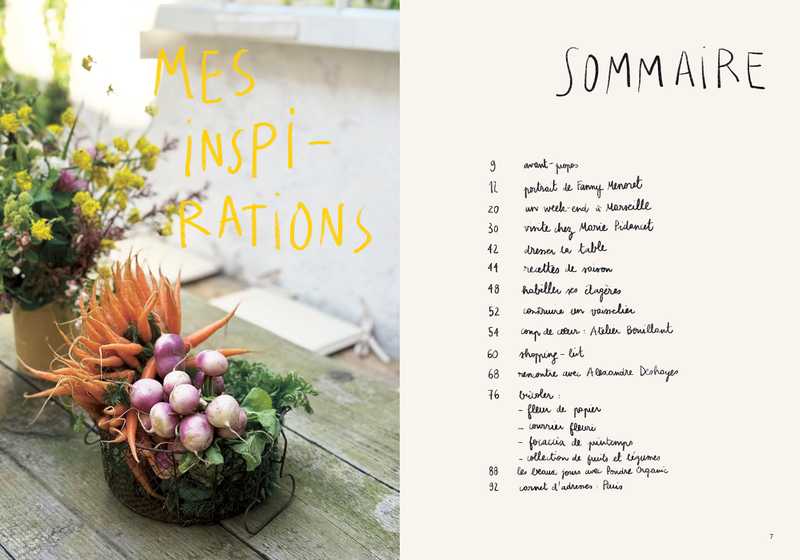 MES
INSPI-
RATIONS
SOMMAIRE
9 avant-propos
12 portrait de Fanny Menoret
20 un week-end à Marseille
30 visite chez Marie Pidancet
42 dresser la table
44 recettes de saison
48 habiller ses étagères
52 construire un vaisselier
54 coup de cœur : Atelier Bouillant
60 shopping-list
68 rencontre avec Alexandre Deshayes
76 bricoler :
- fleur de papier
- courrier fleuri
- focaccia de printemps
- collection de fruits et légumes
88 les beaux jours avec Poudre Organic
92 carnet d'adresses : Paris
7